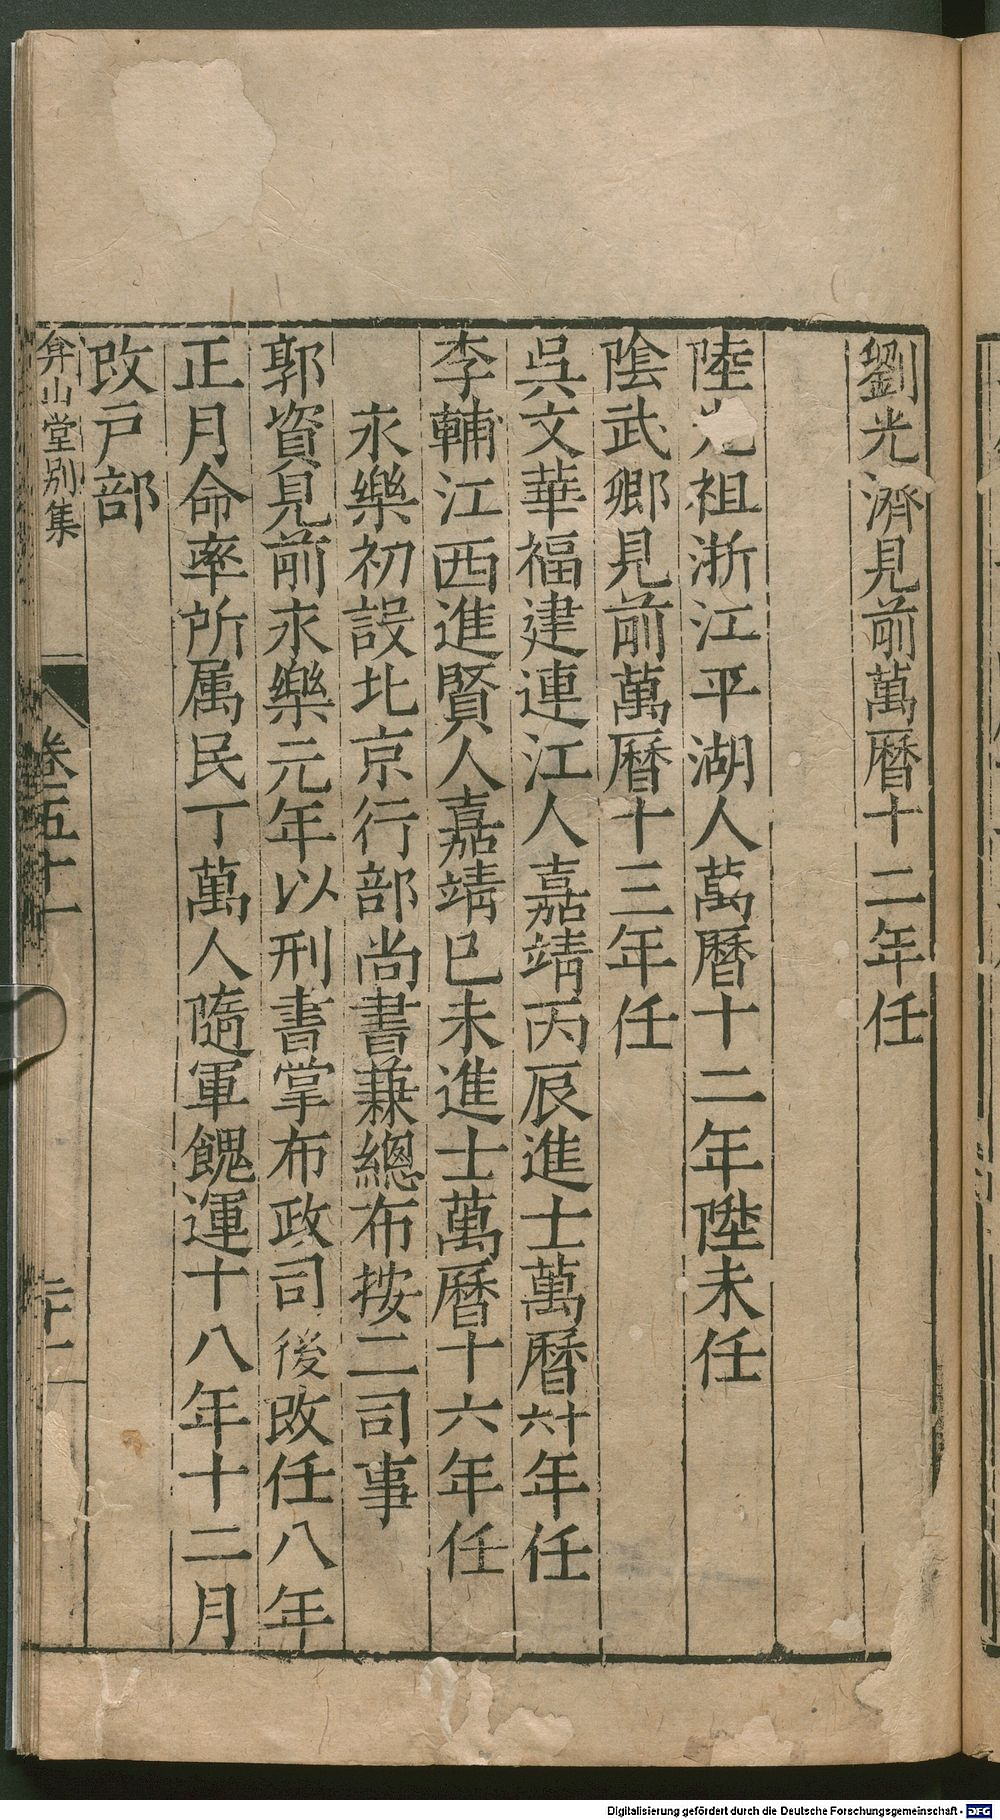 劉光濟見前萬曆十二年任
陸光祖浙江平湖人萬曆十二年陞未任
陰武卿見前萬曆十三年任
吳文華福建連江人嘉靖丙辰進士萬曆十六年任
李輔江西進賢人嘉靖己未進士萬曆十六年任
永樂初設北京行部尚書兼總布按二司事
郭資見前永樂元年以刑書掌布政司後改任八年
正月命率所属民丁萬人隨軍餽運十八年十二月
改戶部
弇山堂别集 卷五十一 二十一
Digitalisierung gefördert durch die Deutsche Forschungsgemeinschaft - DFG